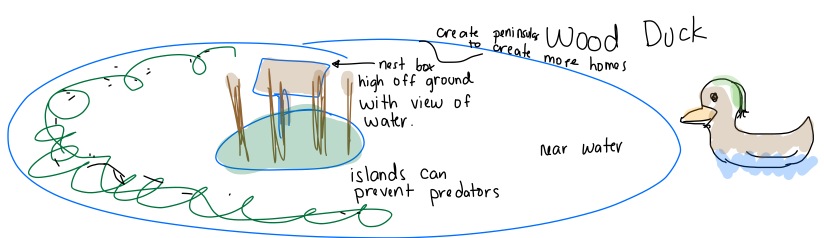 Wood Duck
create peninsula
to
create more homes
nest box
high off ground
with view of
water.
near water
islands can
prevent predators